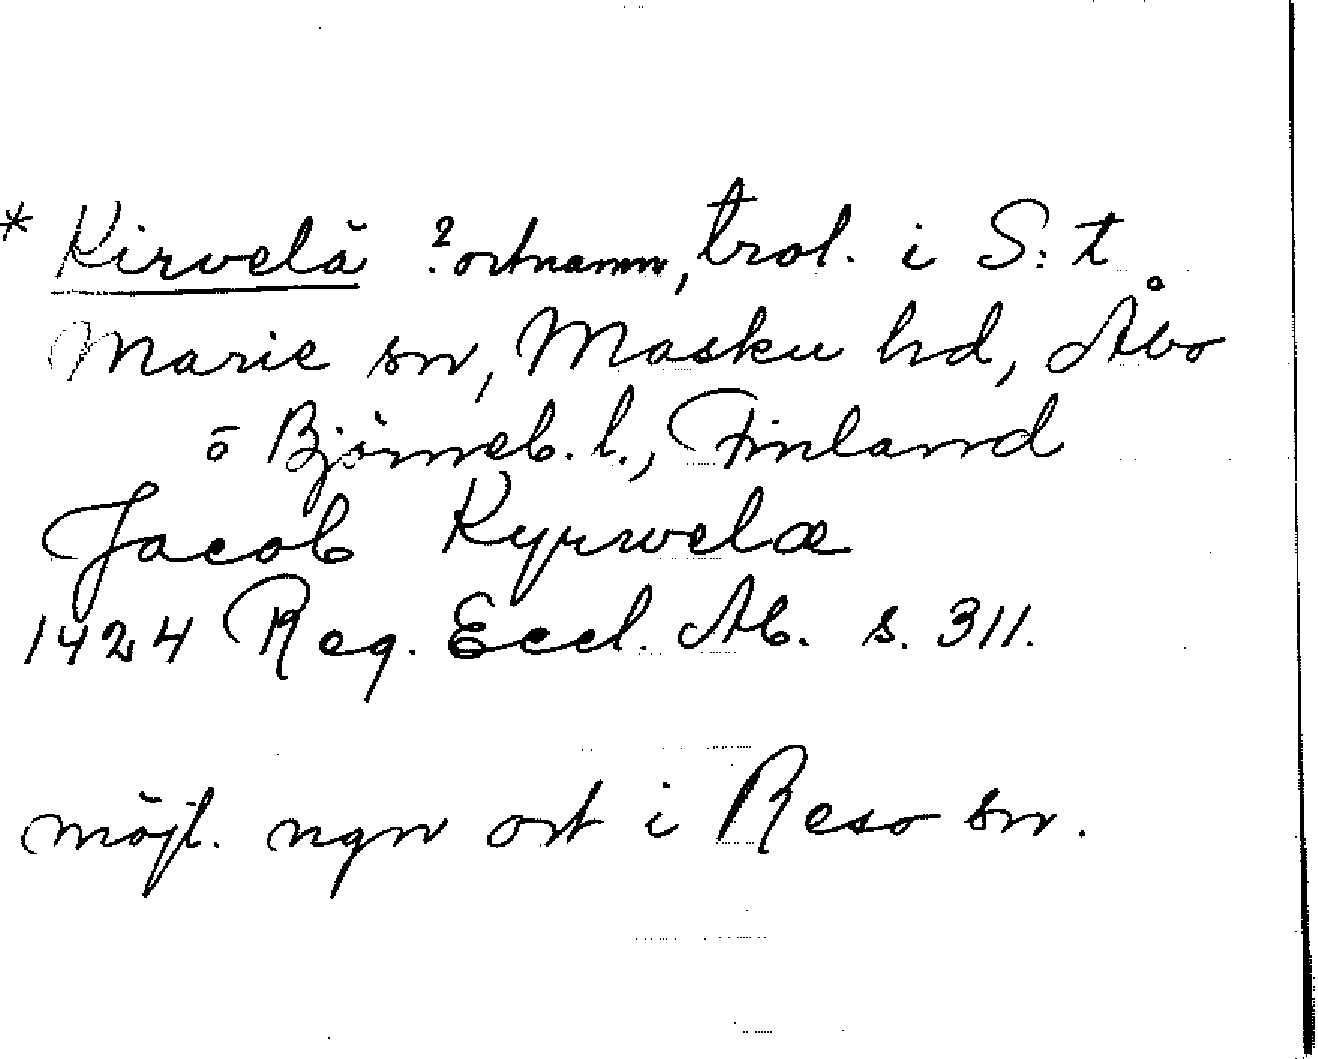 * Kirvelä ? ortnamn, trol. i S:t
Marie sn, Masku hd, Åbo
o Björneb. l., Finland
Jacob Kyrwelæ
1424 Reg. Eccl. Ab. s. 311.
möjl. ngn ort i Reso sn.